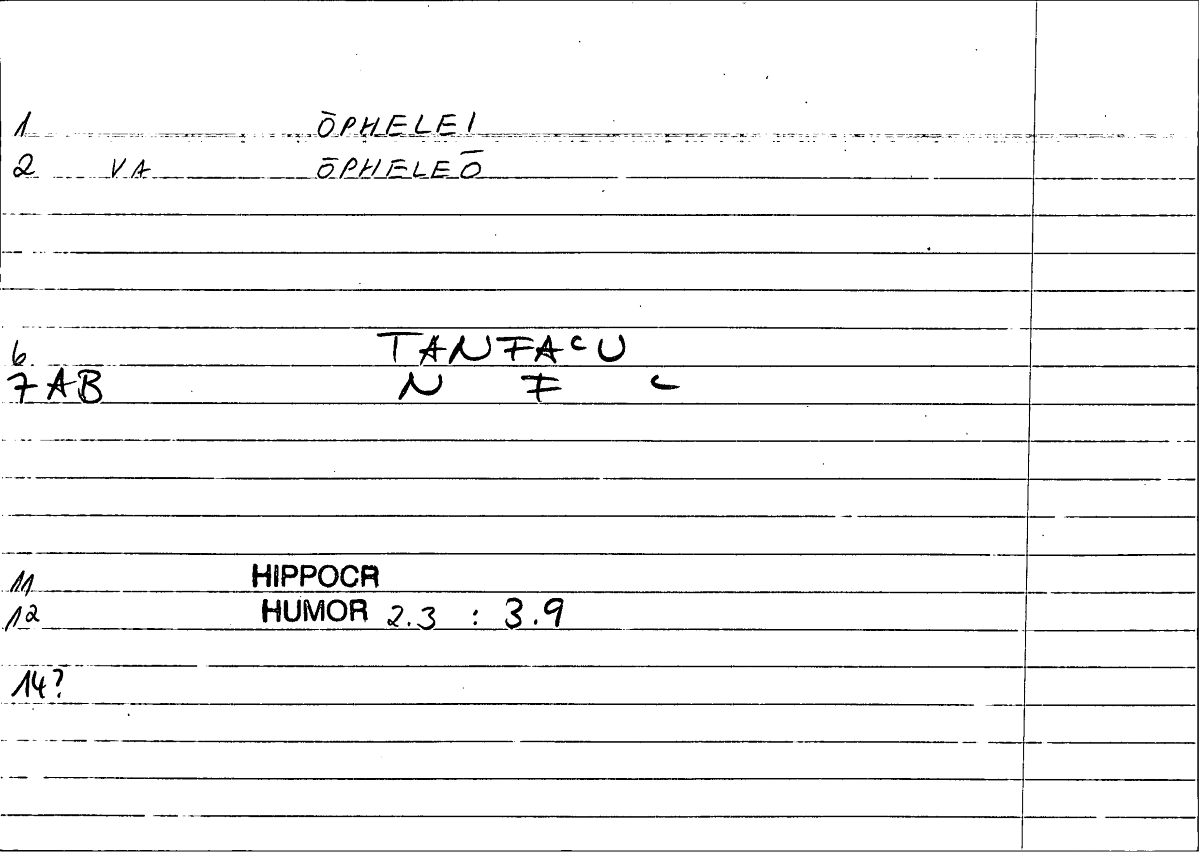 1 ŌPHELEI
2 VA ŌPHELEŌ
6 TANFACU
7AB N F C
11 HIPPOCR
12 HUMOR 2.3 : 3.9
14?